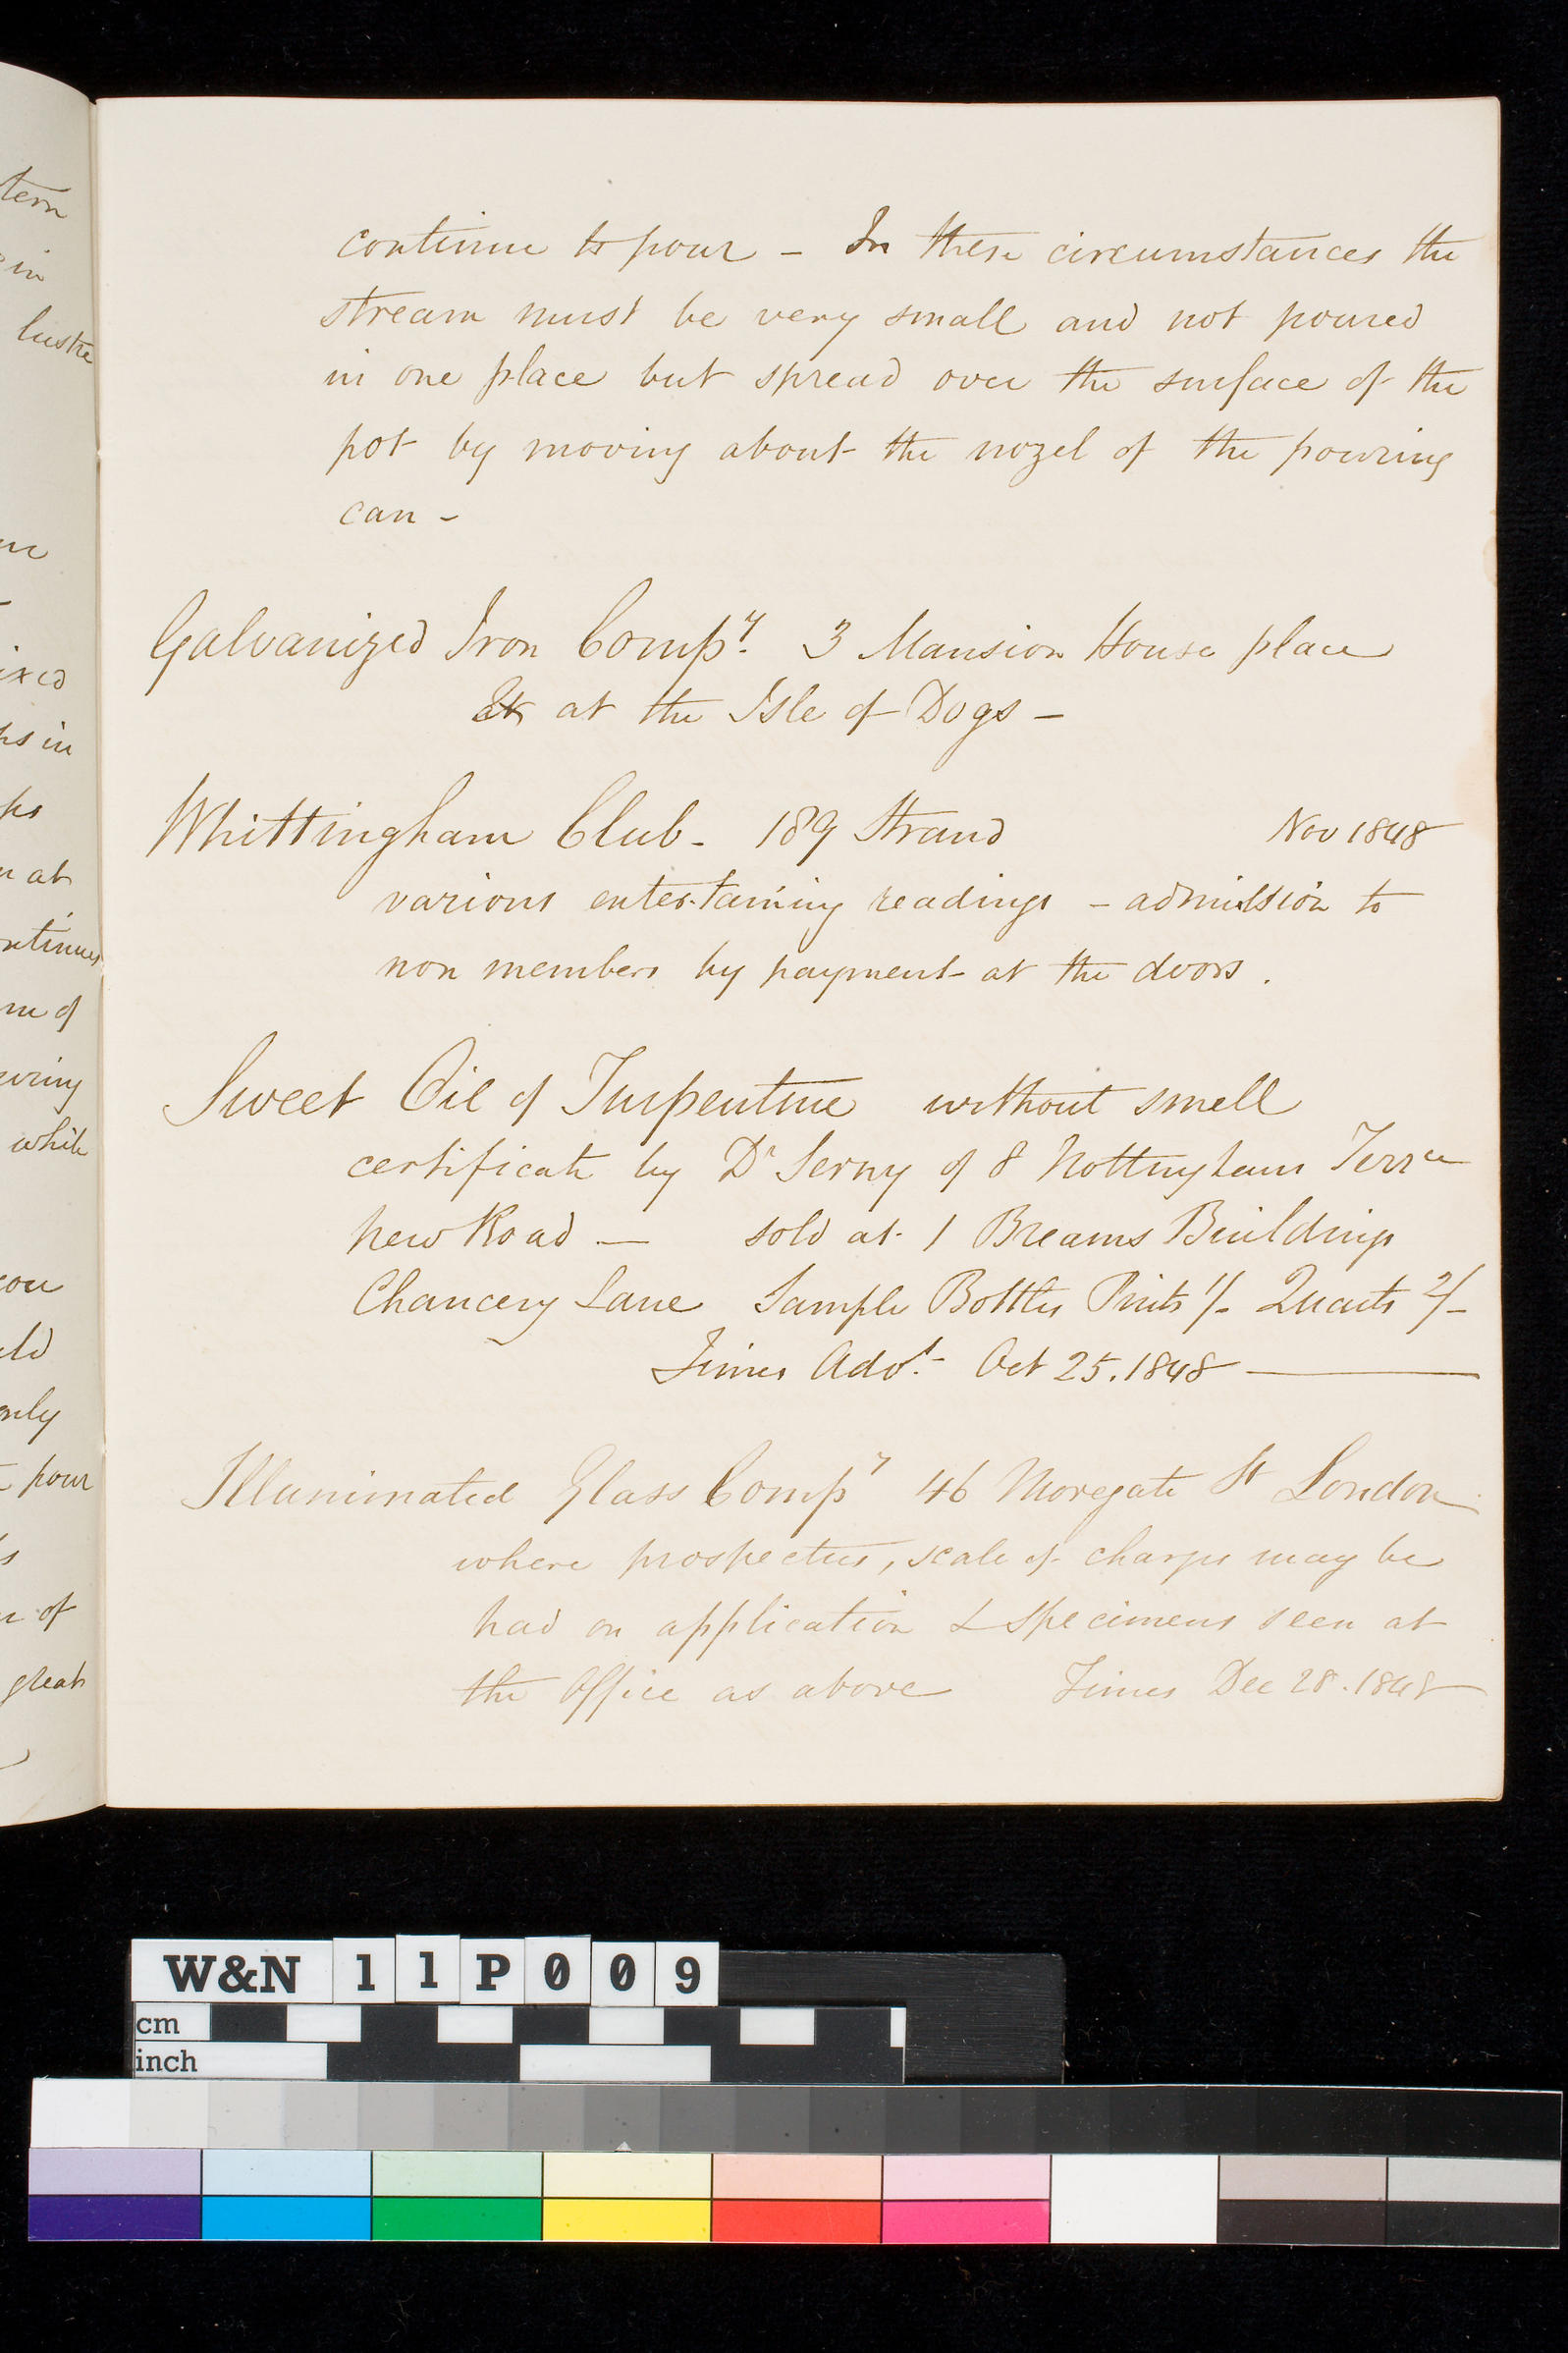 continue to pour - In these circumstances the
stream must be very small and not poured
in one place but spread over the surface of the
pot by moving about the nozel of the pouring
can -
Galvanized Iron Compy. 3 Mansion House place
at the Isle of Dogs -
Whittingham Club - 189 Strand Nov 1848
various entertaining readings - admission to
non members by payment at the doors.
Sweet Oil of Turpentine without smell
certificate by Dr Serny of 8 Nottingham Terrce
New Road — sold at 1 Breams Buildings
Chancery Lane Sample Bottles Pints 1/- Quarts 2/-
Times Advt. - Oct 25. 1848 —
Illuminated Glass Compy 46 Moregate St London
where prospectus, scale of charges may be
had on application & specimens seen at
the Office as above Times Dec 28. 1848
tern
in
lustre
ixed
ps in
at
ntinues
me of
uring
while
you
uld
only
pour
of
great
W&N 11P009
cm
inch